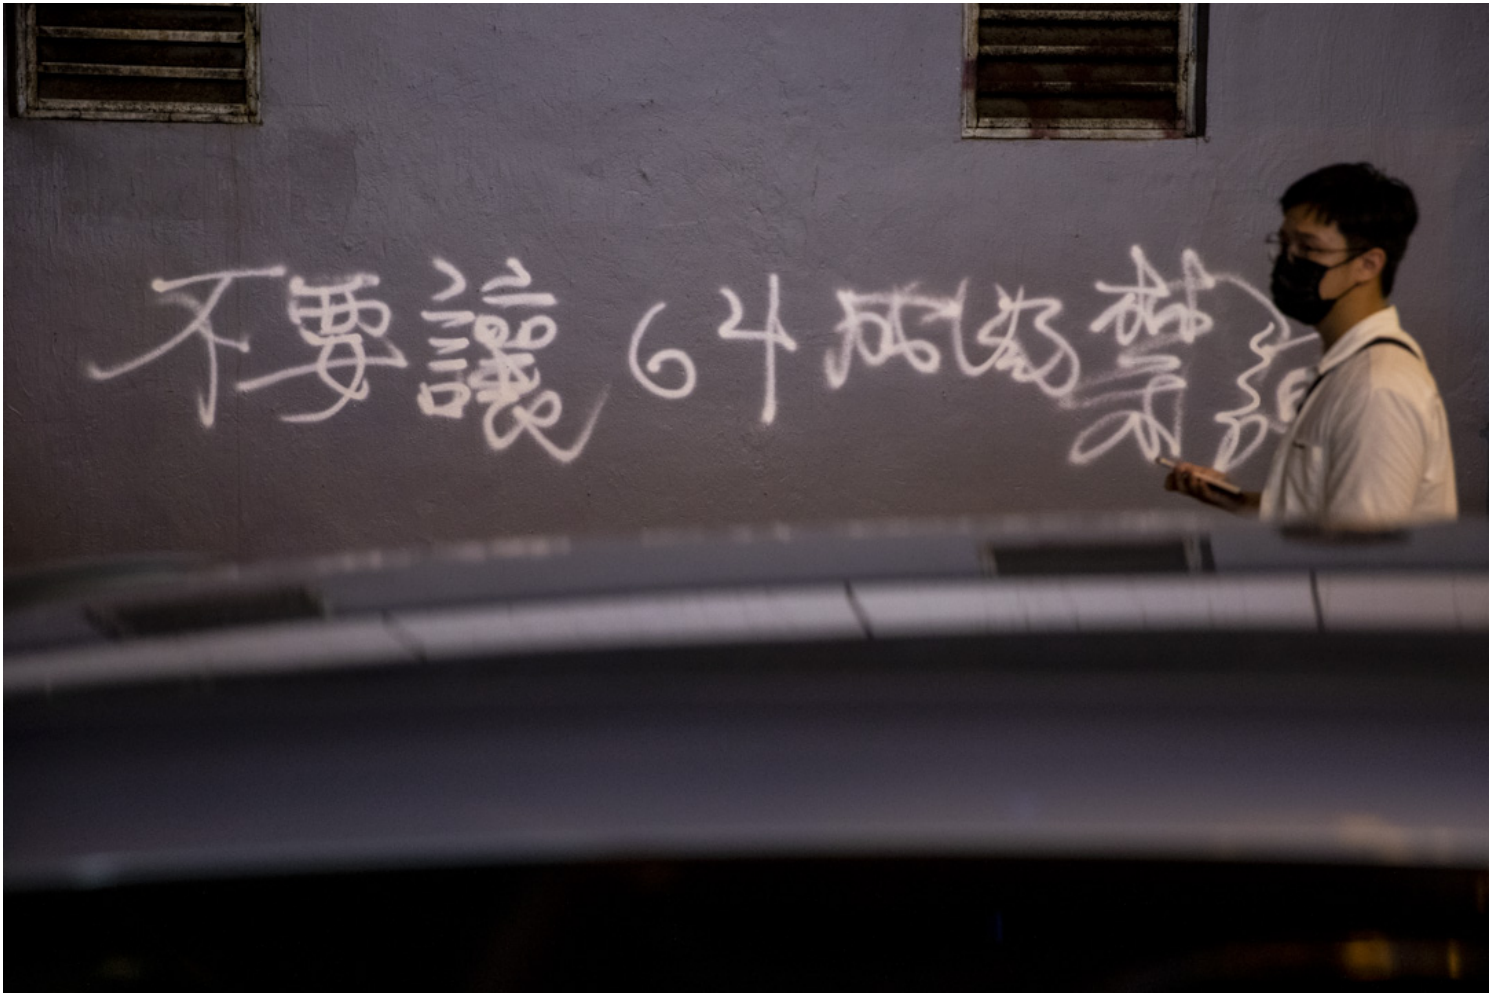 不要讓64成為禁忌